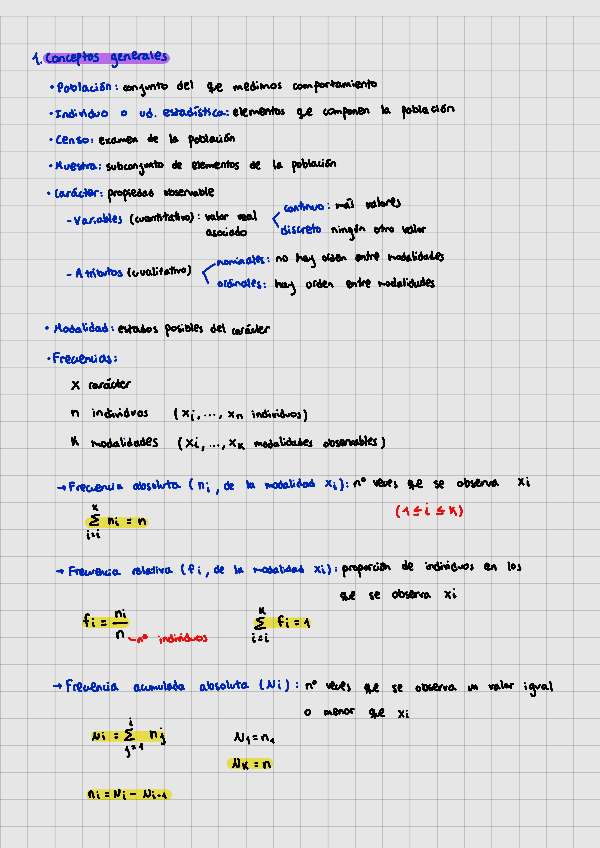 1. Conceptos generales
• Población: conjunto del que medimos comportamiento
• Individuo o ud. estadística: elementos que componen la población
• Censo: examen de la población
• Muestra: subconjunto de elementos de la población
• Carácter: propiedad observable
- Variables (cuantitativo): valor real asociado
continuo: más valores
discreto ningún otro valor
- Atributos (cualitativo)
nominales: no hay orden entre modalidades
ordinales: hay orden entre modalidades
• Modalidad: estados posibles del carácter
• Frecuencias:
X carácter
n individuos (xi, ..., xn individuos)
K modalidades (xi, ..., xK modalidades observables)
→ Frecuencia absoluta (ni, de la modalidad xi): nº veces que se observa xi
K
∑ ni = n
i=i
(1 ≤ i ≤ K)
→ Frecuencia relativa (fi, de la modalidad xi): proporción de individuos en los
que se observa xi
fi = ni/n
nº individuos
K
∑ fi = 1
i=i
→ Frecuencia acumulada absoluta (Ni): nº veces que se observa un valor igual
o menor que xi
i
Ni = ∑ nj
j=1
N1 = n1
NK = n
ni = Ni - Ni-1